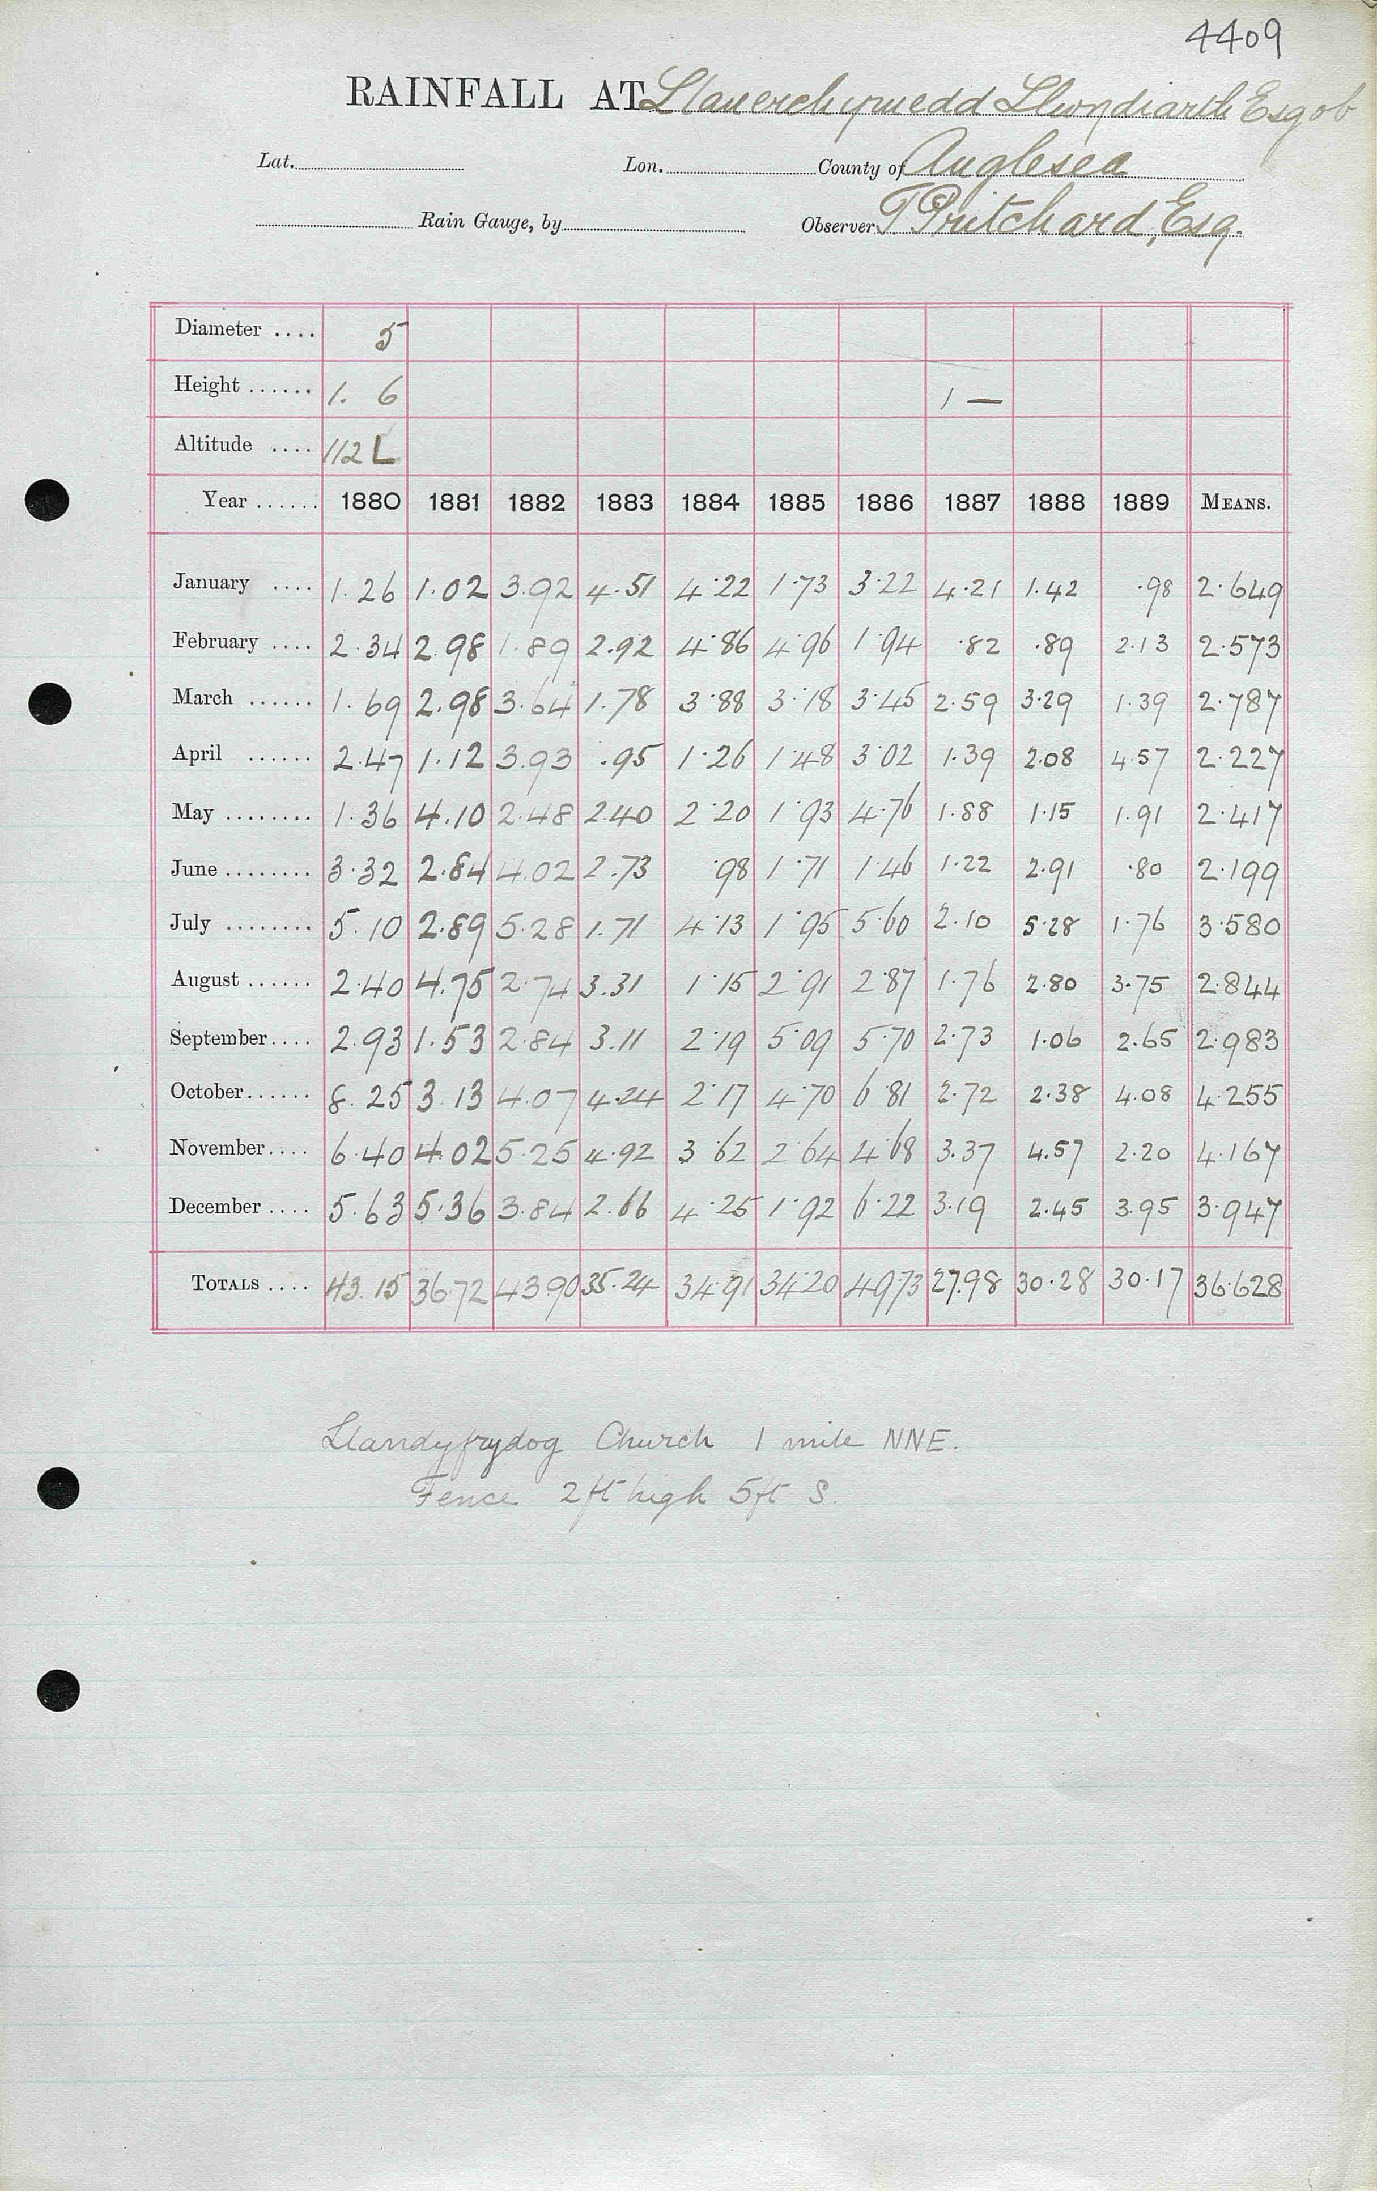 4409
RAINFALL AT Llanerchymedd Llwydiarth Esgob
Lat. Lon. County of Anglesea
Rain Gauge, by Observer T Pritchard, Esq.
Diameter .... 5
Height ...... 1. 6 1 —
Altitude .... 112 L
Year ...... 1880 1881 1882 1883 1884 1885 1886 1887 1888 1889 MEANS.
January .... 1.26 1.02 3.92 4.51 4.22 1.73 3.22 4.21 1.42 .98 2.649
February .... 2.34 2.98 1.89 2.92 4.86 4.96 1.94 .82 .89 2.13 2.573
March ...... 1.69 2.98 3.64 1.78 3.88 3.18 3.45 2.59 3.29 1.39 2.787
April ...... 2.47 1.12 3.93 .95 1.26 1.48 3.02 1.39 2.08 4.57 2.227
May ........ 1.36 4.10 2.48 2.40 2.20 1.93 4.76 1.88 1.15 1.91 2.417
June ........ 3.32 2.84 4.02 2.73 .98 1.71 1.46 1.22 2.91 .80 2.199
July ........ 5.10 2.89 5.28 1.71 4.13 1.95 5.60 2.10 5.28 1.76 3.580
August ...... 2.40 4.75 2.74 3.31 1.15 2.91 2.87 1.76 2.80 3.75 2.844
September .... 2.93 1.53 2.84 3.11 2.19 5.09 5.70 2.73 1.06 2.65 2.983
October ...... 8.25 3.13 4.07 4.24 2.17 4.70 6.81 2.72 2.38 4.08 4.255
November .... 6.40 4.02 5.25 4.92 3.62 2.64 4.68 3.37 4.57 2.20 4.167
December .... 5.63 5.36 3.84 2.66 4.25 1.92 6.22 3.19 2.45 3.95 3.947
TOTALS .... 43.15 36.72 43.90 35.24 34.91 34.20 49.73 27.98 30.28 30.17 36.628
Llandyfrydog Church 1 mile NNE.
Fence 2ft high 5ft S.